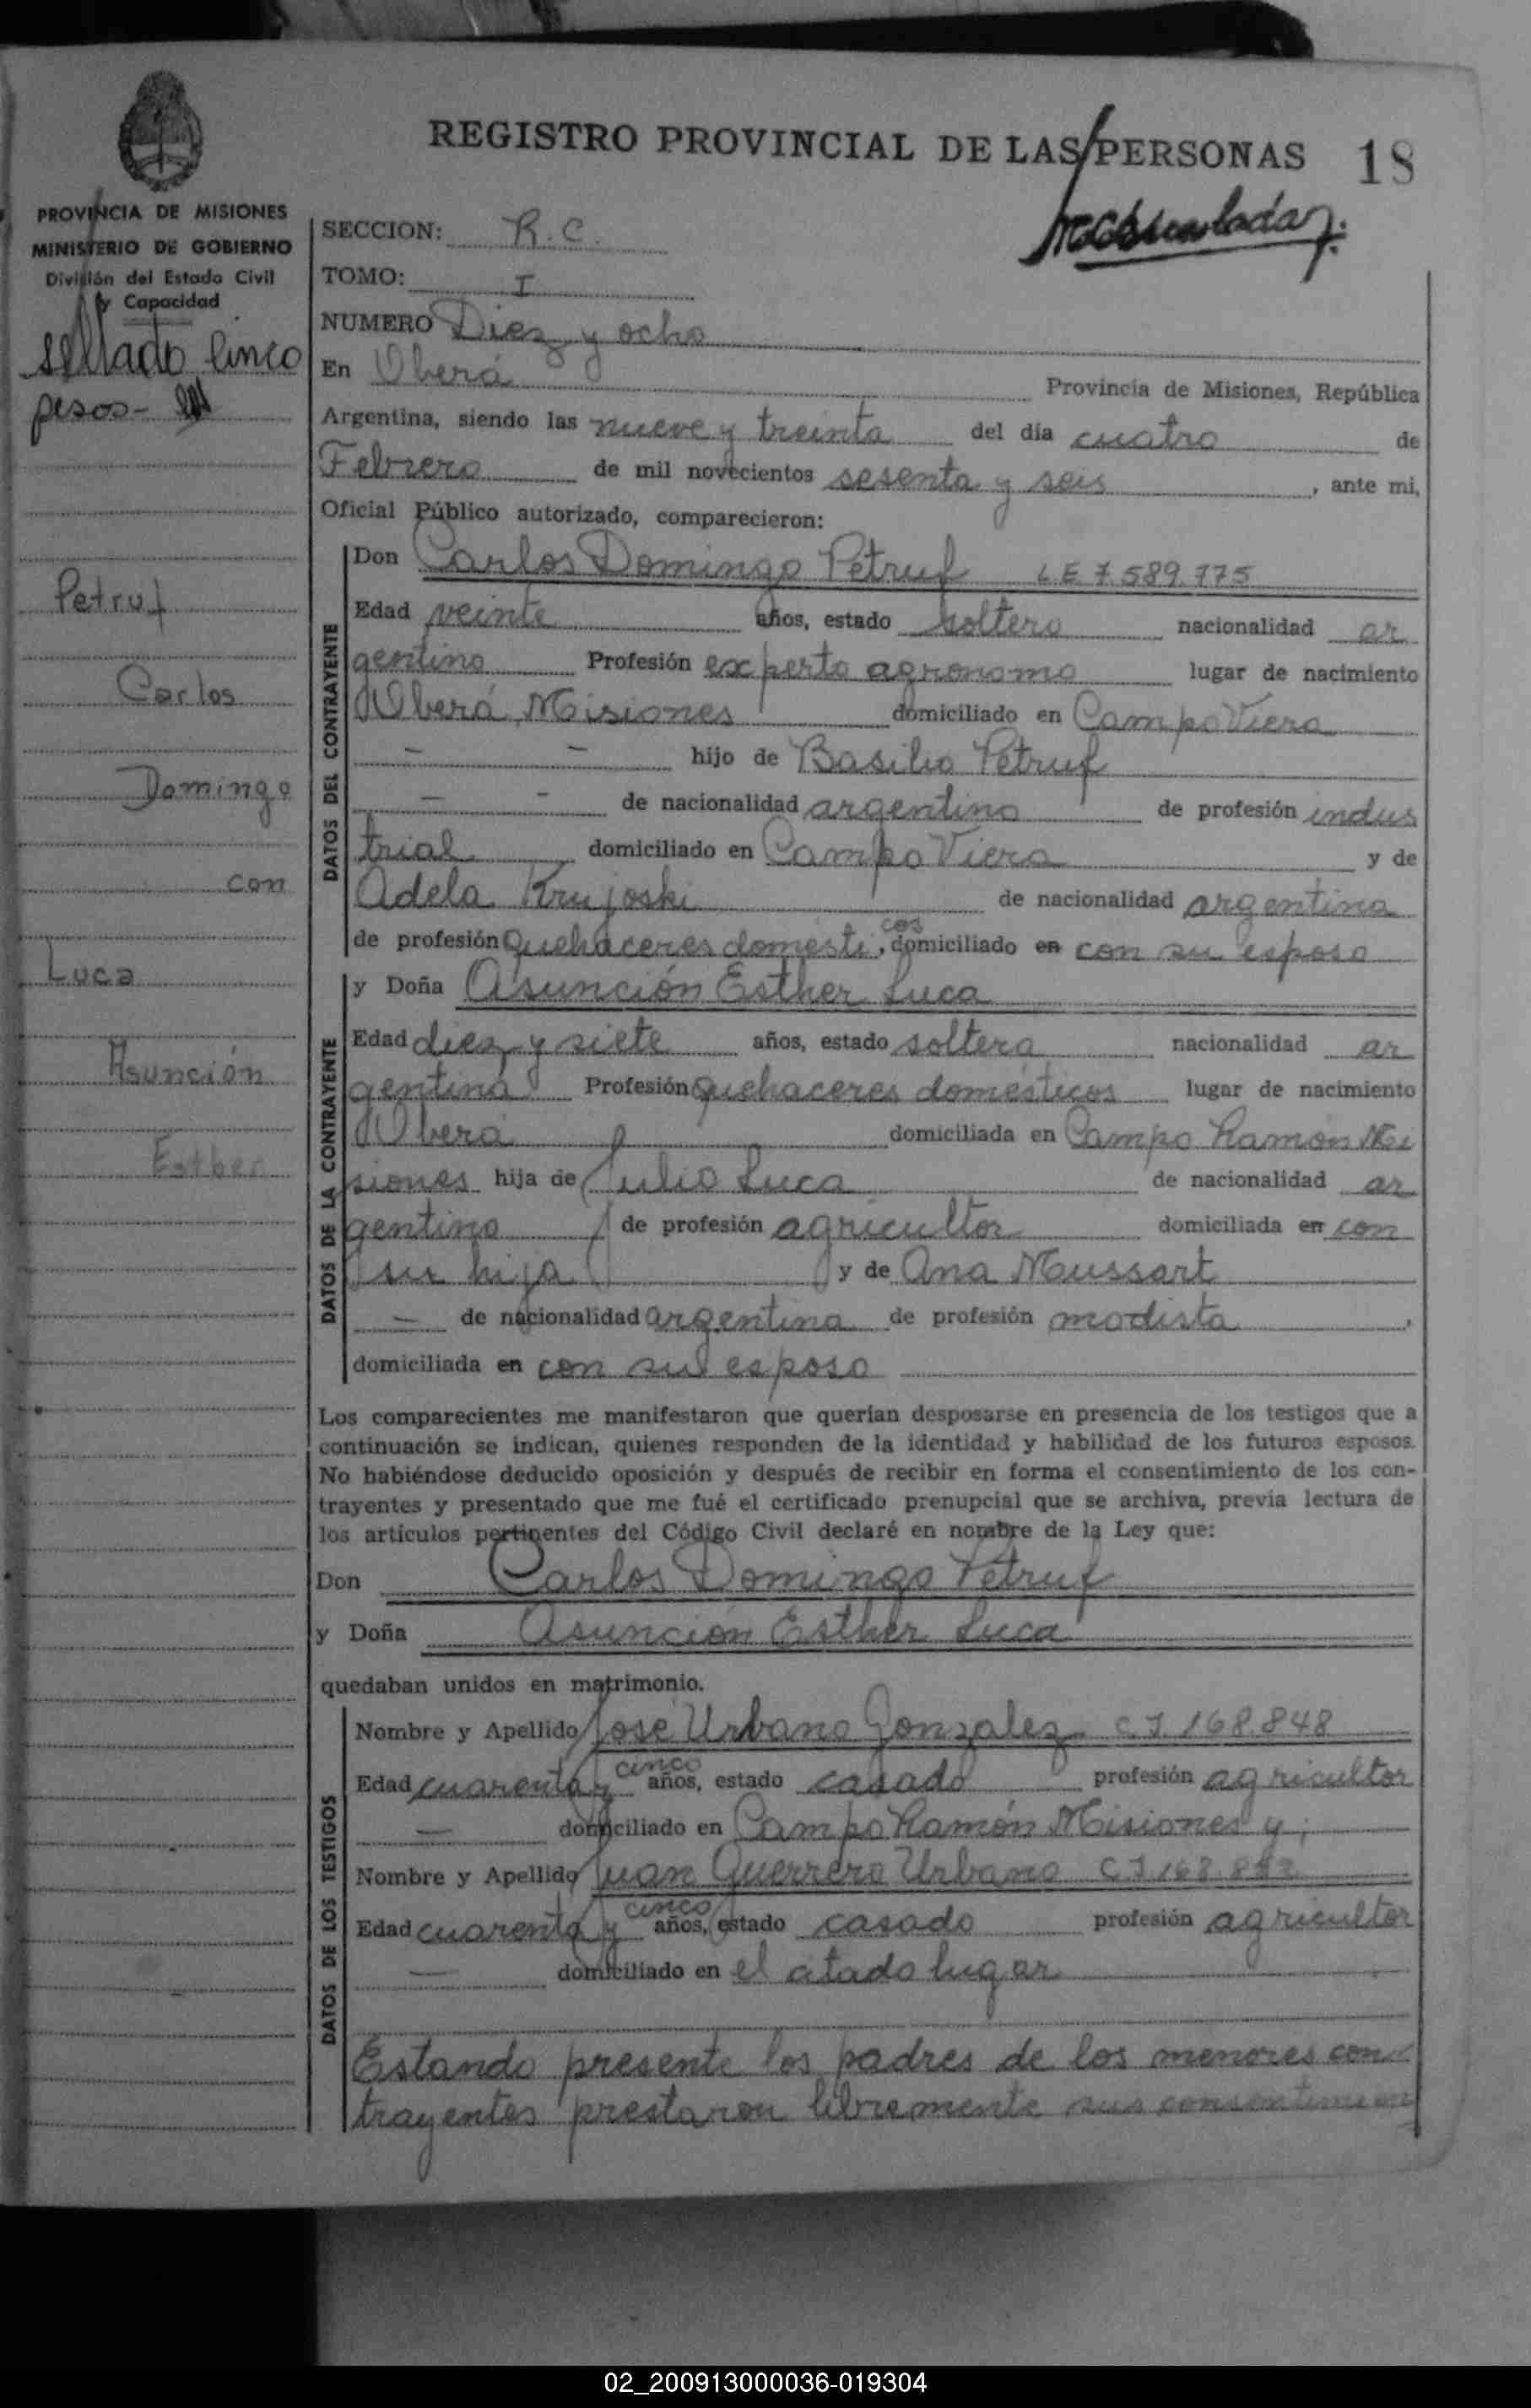 REGISTRO PROVINCIAL DE LAS PERSONAS 18
PROVINCIA DE MISIONES
MINISTERIO DE GOBIERNO
División del Estado Civil
y Capacidad
sellado cinco
pesos-
Petruf
Carlos
Domingo
con
Luca
Asunción
Esther
SECCION: R.C.
TOMO: I
NUMERO Diez y ocho
En Oberá Provincia de Misiones, República
Argentina, siendo las nueve y treinta del día cuatro de
Febrero de mil novecientos sesenta y seis, ante mi,
Oficial Público autorizado, comparecieron:
DATOS DEL CONTRAYENTE
Don Carlos Domingo Petruf L.E 7.589.775
Edad veinte años, estado soltero nacionalidad ar
gentino Profesión experto agronomo lugar de nacimiento
Oberá Misiones domiciliado en Campo Viera
— — hijo de Basilio Petruf
— - de nacionalidad argentino de profesión indus
trial domiciliado en Campo Viera y de
Adela Krujoski de nacionalidad argentina
de profesión Quehaceres domésticos, domiciliado en con su esposo
DATOS DE LA CONTRAYENTE
y Doña Asunción Esther Luca
Edad diez y siete años, estado soltera nacionalidad ar
gentina Profesión Quehaceres domésticos lugar de nacimiento
Oberá domiciliada en Campo Ramon Mi
siones hija de Julio Luca de nacionalidad ar
gentino de profesión agricultor domiciliada en con
su hija y de Ana Mussart
— de nacionalidad argentina de profesión modista,
domiciliada en con su esposo
Los comparecientes me manifestaron que querían desposarse en presencia de los testigos que a
continuación se indican, quienes responden de la identidad y habilidad de los futuros esposos.
No habiéndose deducido oposición y después de recibir en forma el consentimiento de los con-
trayentes y presentado que me fué el certificado prenupcial que se archiva, previa lectura de
los artículos pertinentes del Código Civil declaré en nombre de la Ley que:
Don Carlos Domingo Petruf
y Doña Asunción Esther Luca
quedaban unidos en matrimonio.
DATOS DE LOS TESTIGOS
Nombre y Apellido José Urbano Gonzalez C I. 168.848
Edad cuarenta y cinco años, estado casado profesión agricultor
— domiciliado en Campo Ramón Misiones y;
Nombre y Apellido Juan Guerrero Urbano C I 168.
Edad cuarenta y cinco años, estado casado profesión agricultor
— domiciliado en el citado lugar
Estando presente los padres de los menores con
trayentes prestaron libremente sus consentimien
02_200913000036-019304